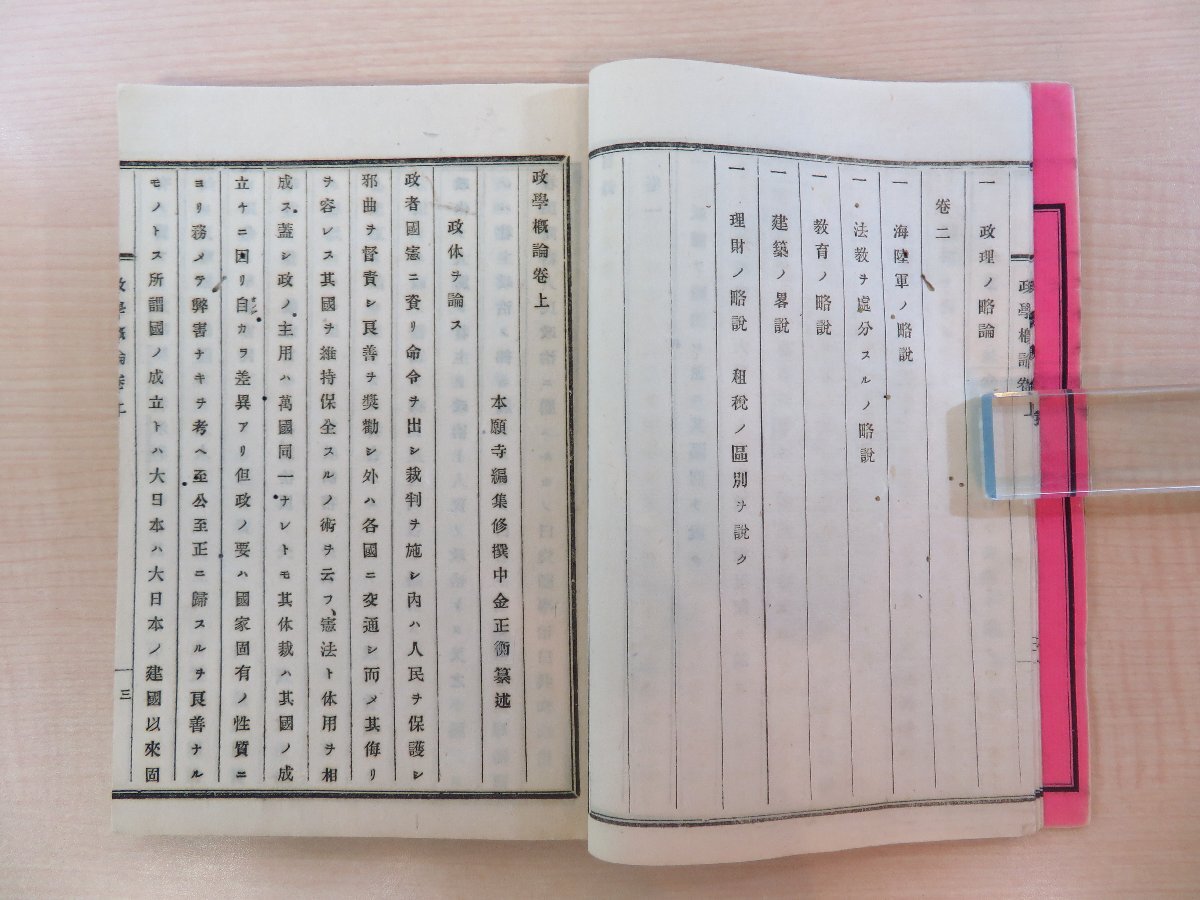 一 政理ノ略論
卷二
一 海陸軍ノ略說
一 法敎ヲ處分スルノ略說
一 敎育ノ略說
一 建築ノ畧說
一 理財ノ略說 租稅ノ區別ヲ說ク
政學槪論卷上
本願寺編集修撰中金正衡纂述
政体ヲ論ス
政者國憲ニ資リ命令ヲ出シ裁判ヲ施シ內ハ人民ヲ保護シ
邪曲ヲ督責シ良善ヲ奬勸シ外ハ各國ニ交通シ而メ其侮リ
ヲ容レス其國ヲ維持保全スルノ術ヲ云フ、憲法ト体用ヲ相
成ス蓋シ政ノ主用ハ萬國同一ナレトモ其体裁ハ其國ノ成
立ケニ因リ自カラ差異アリ但政ノ要ハ國家固有ノ性質ニ
ヨリ務メテ弊害ナキヲ考ヘ至公至正ニ歸スルヲ良善ナル
モノトス所謂國ノ成立トハ大日本ハ大日本ノ建國以來固
三